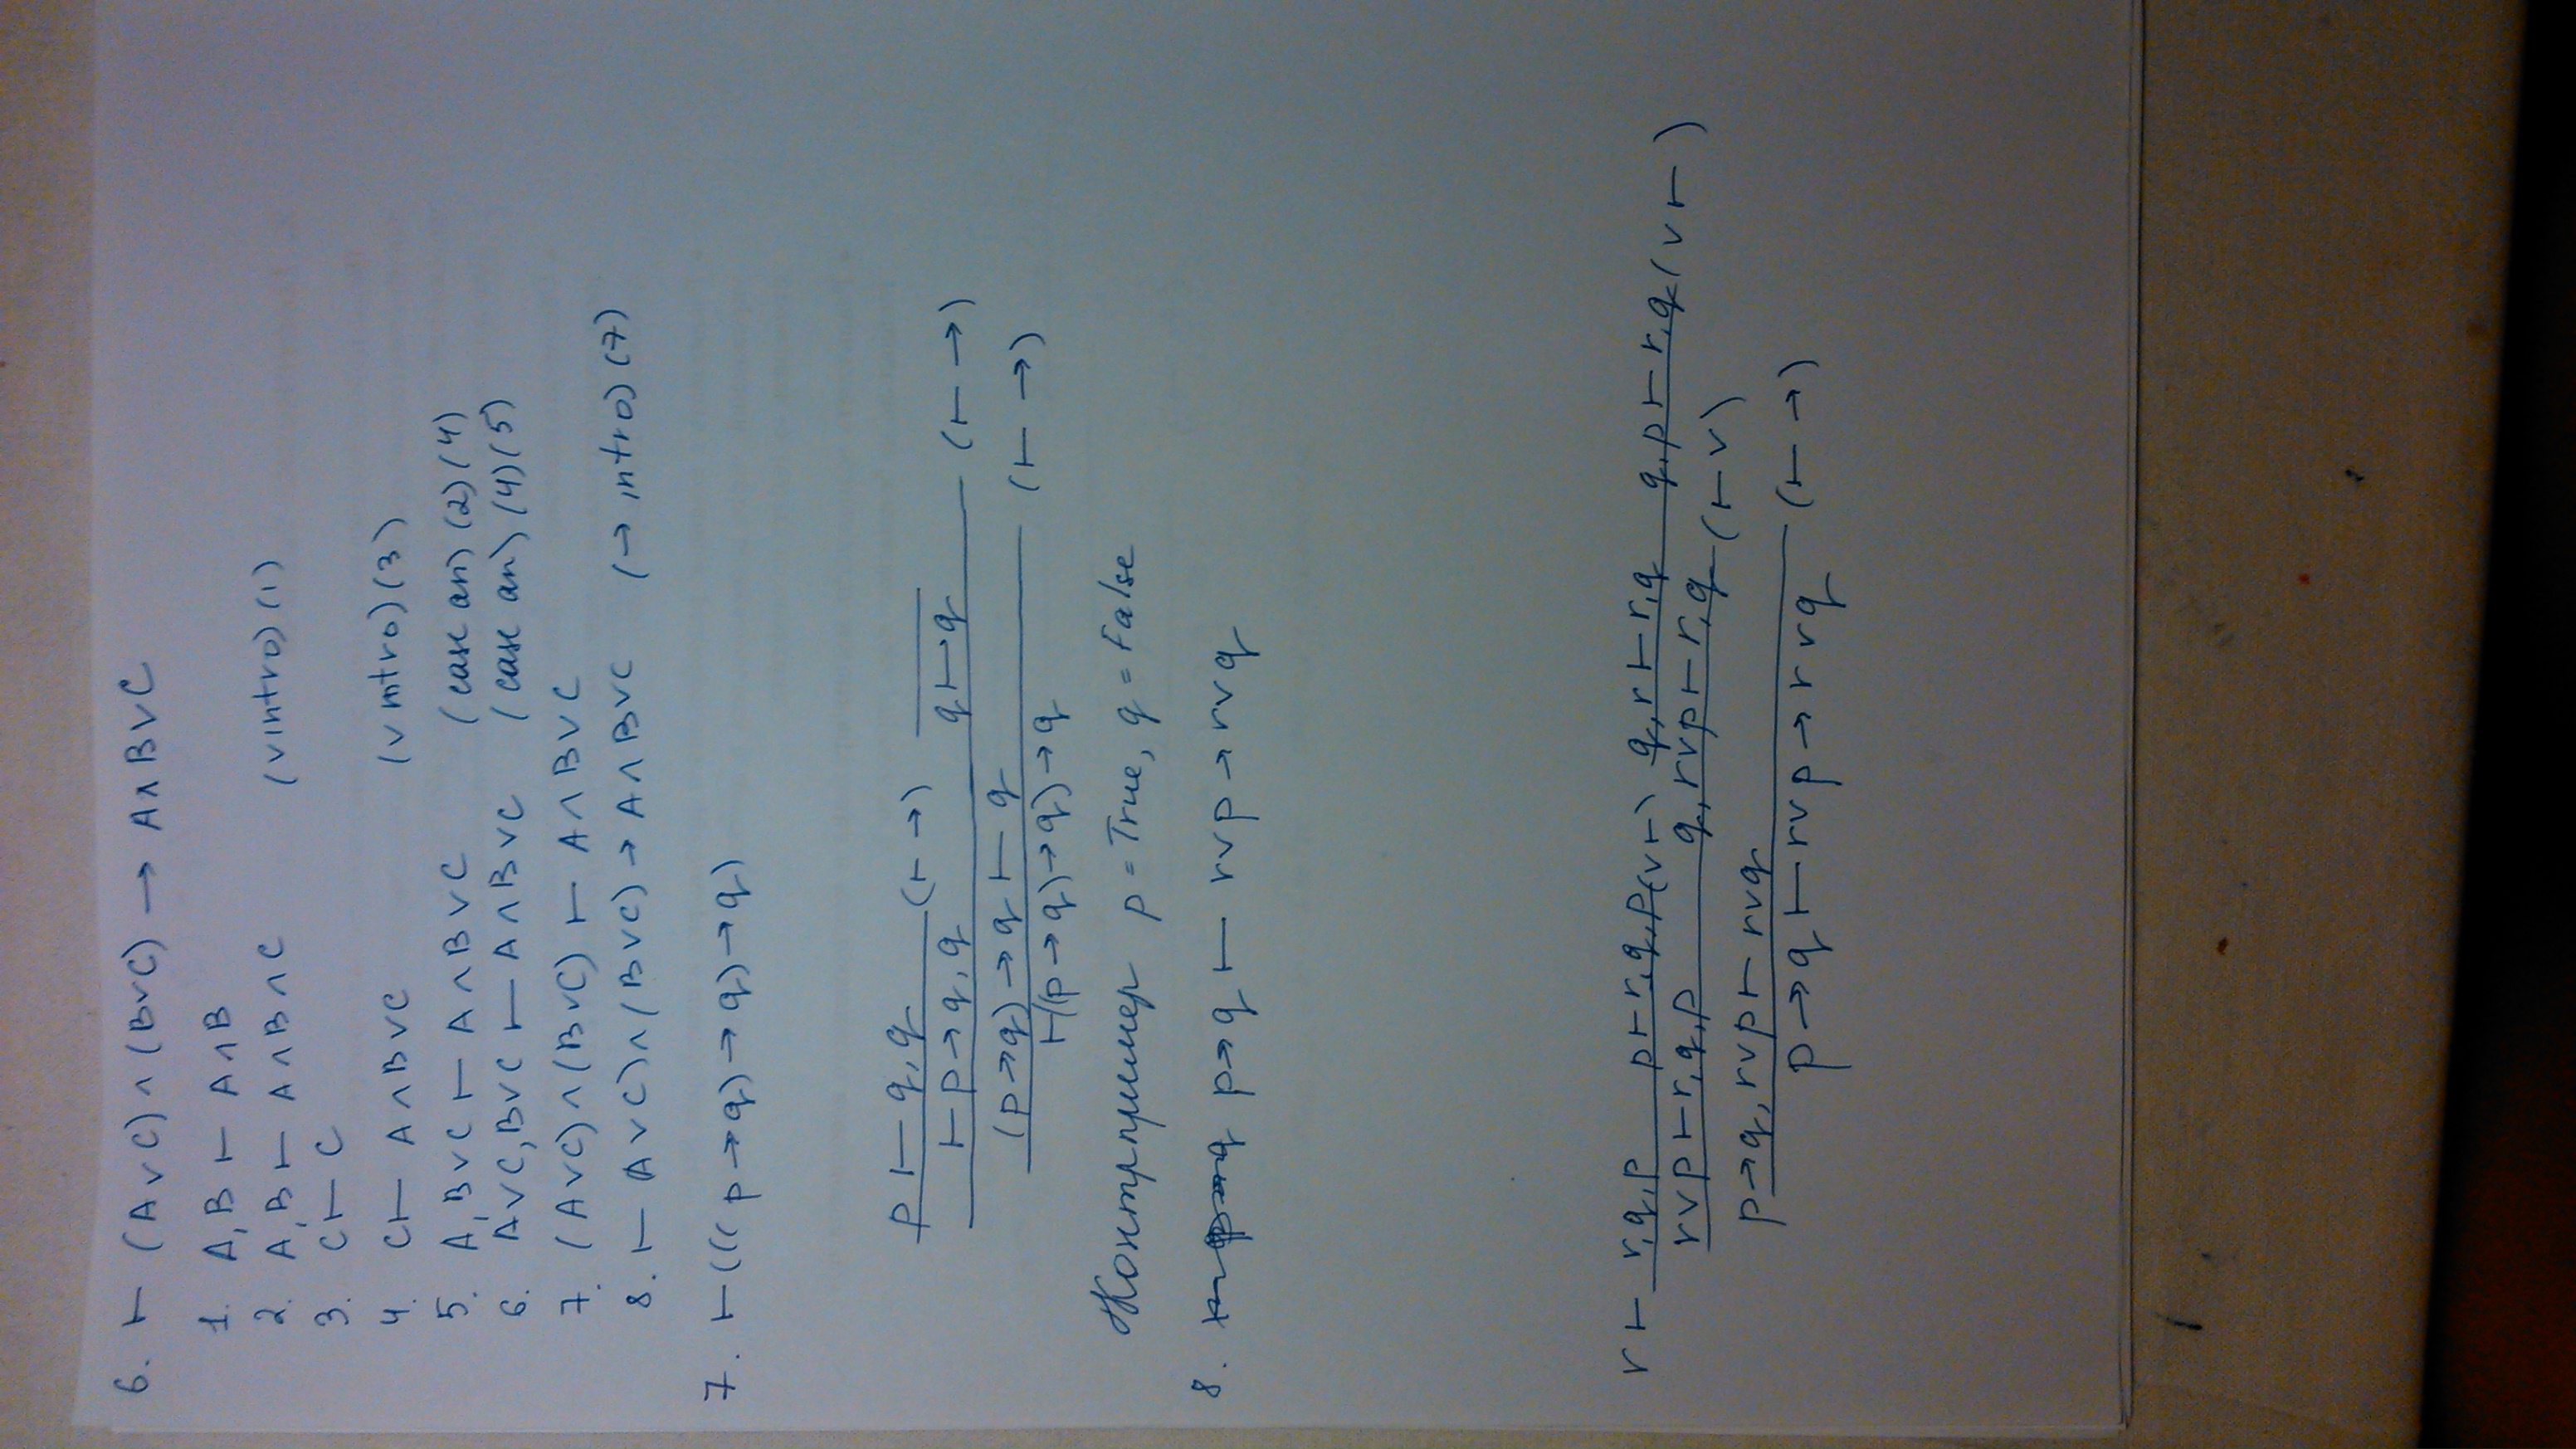 6. ⊢ (A∨C)∧(B∨C) → A∧B∨C
1. A,B ⊢ A∧B
2. A,B ⊢ A∧B∧C (∨intro)(1)
3. C ⊢ C
4. C ⊢ A∧B∨C (∨intro)(3)
5. A,B∨C ⊢ A∧B∨C (case an)(2)(4)
6. A∨C,B∨C ⊢ A∧B∨C (case an)(4)(5)
7. (A∨C)∧(B∨C) ⊢ A∧B∨C
8. ⊢ A∨C)∧(B∨C) → A∧B∨C (→intro)(7)
7. ⊢(((p→q)→q)→q)
p ⊢ q,q (⊢→)
⊢p→q,q q⊢q (⊢→)
(p→q)→q ⊢ q (⊢→)
⊢((p→q)→q)→q
Контрпример p = True, q = False
8. p→q ⊢ r∨p→r∨q
r ⊢ r,q,p p⊢r,q,p(∨⊢) q,r⊢r,q q,p⊢r,q(∨⊢)
r∨p⊢r,q,p q,r∨p⊢r,q (⊢∨)
p→q, r∨p⊢r∨q (⊢→)
p→q⊢r∨p→r∨q